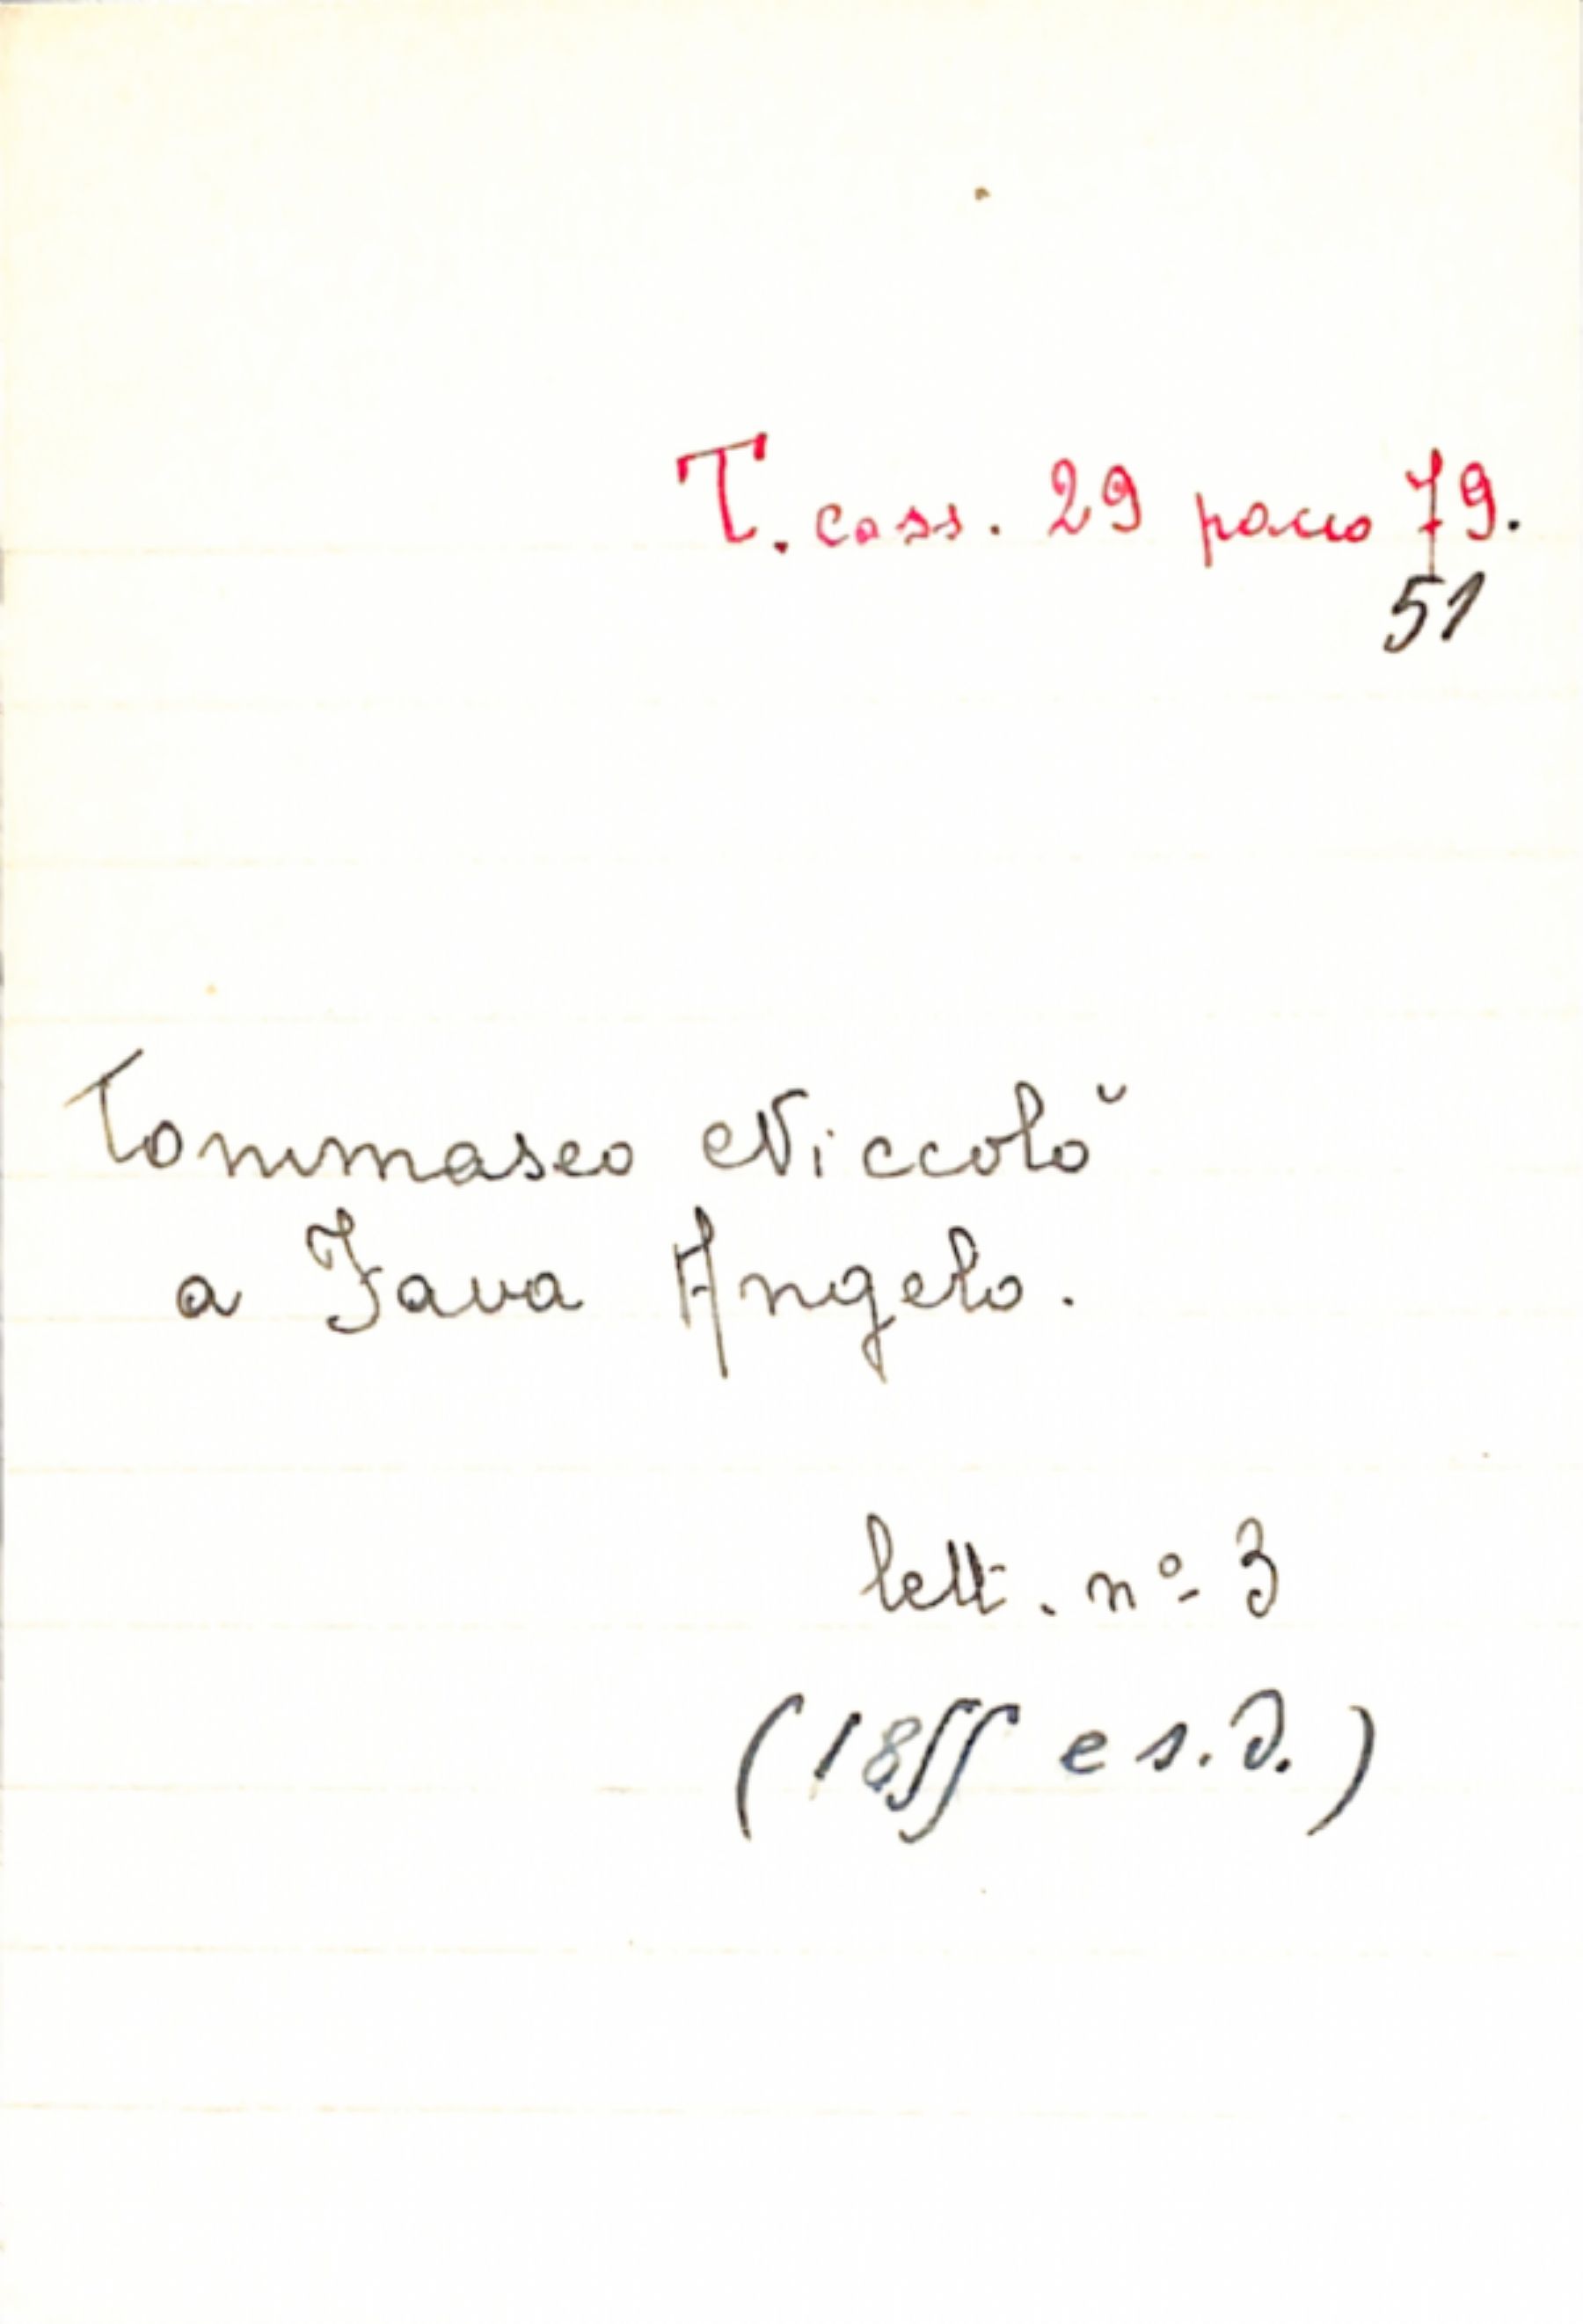 T. cass. 29 pacco 79.
51
Tommaseo Niccolò
a Fava Angelo.
lett. nº 3
(1855 e s.d.)